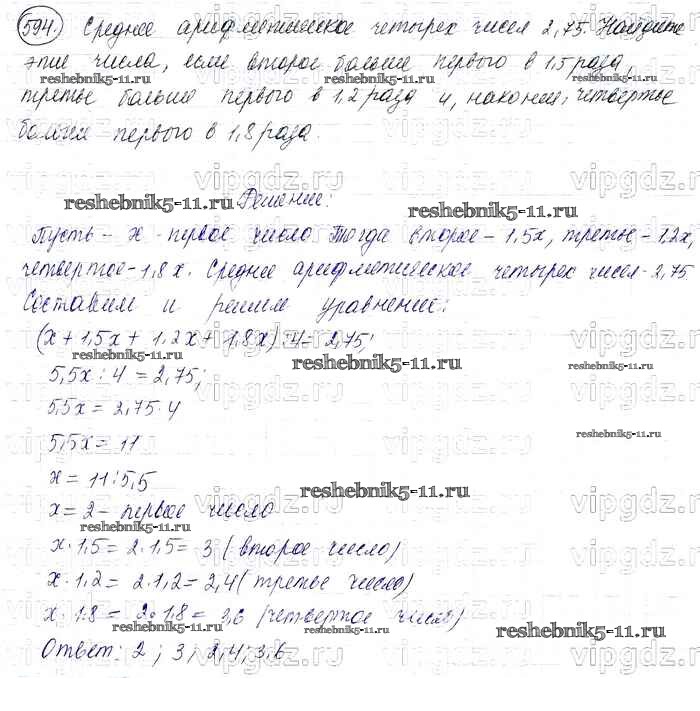 594. Среднее арифметическое четырех чисел 2,75. Найдите
эти числа, если второе больше первого в 1,5 раза,
reshebnik5-11.ru reshebnik5-11.ru
третье больше первого в 1,2 раза и, наконец, четвертое
больше первого в 1,8 раза.
vipgdz.ru vipgdz.ru vipgdz.ru
reshebnik5-11.ru Решение: reshebnik5-11.ru
Пусть - x - первое число. Тогда второе - 1,5x, третье - 1,2x,
четвертое - 1,8x. Среднее арифметическое четырех чисел - 2,75
Составим и решим уравнение:
(x + 1,5x + 1,2x + 1,8x) : 4 = 2,75;
reshebnik5-11.ru reshebnik5-11.ru reshebnik5-11.ru
5,5x : 4 = 2,75;
5,5x = 2,75·4
5,5x = 11
reshebnik5-11.ru
x = 11:5,5
reshebnik5-11.ru
x = 2 - первое число
reshebnik5-11.ru
x·1,5 = 2·1,5 = 3 (второе число)
x·1,2 = 2·1,2 = 2,4 (третье число)
x·1,8 = 2·1,8 = 3,6 (четвертое число)
reshebnik5-11.ru reshebnik5-11.ru reshebnik5-11.ru
Ответ: 2; 3; 2,4; 3,6